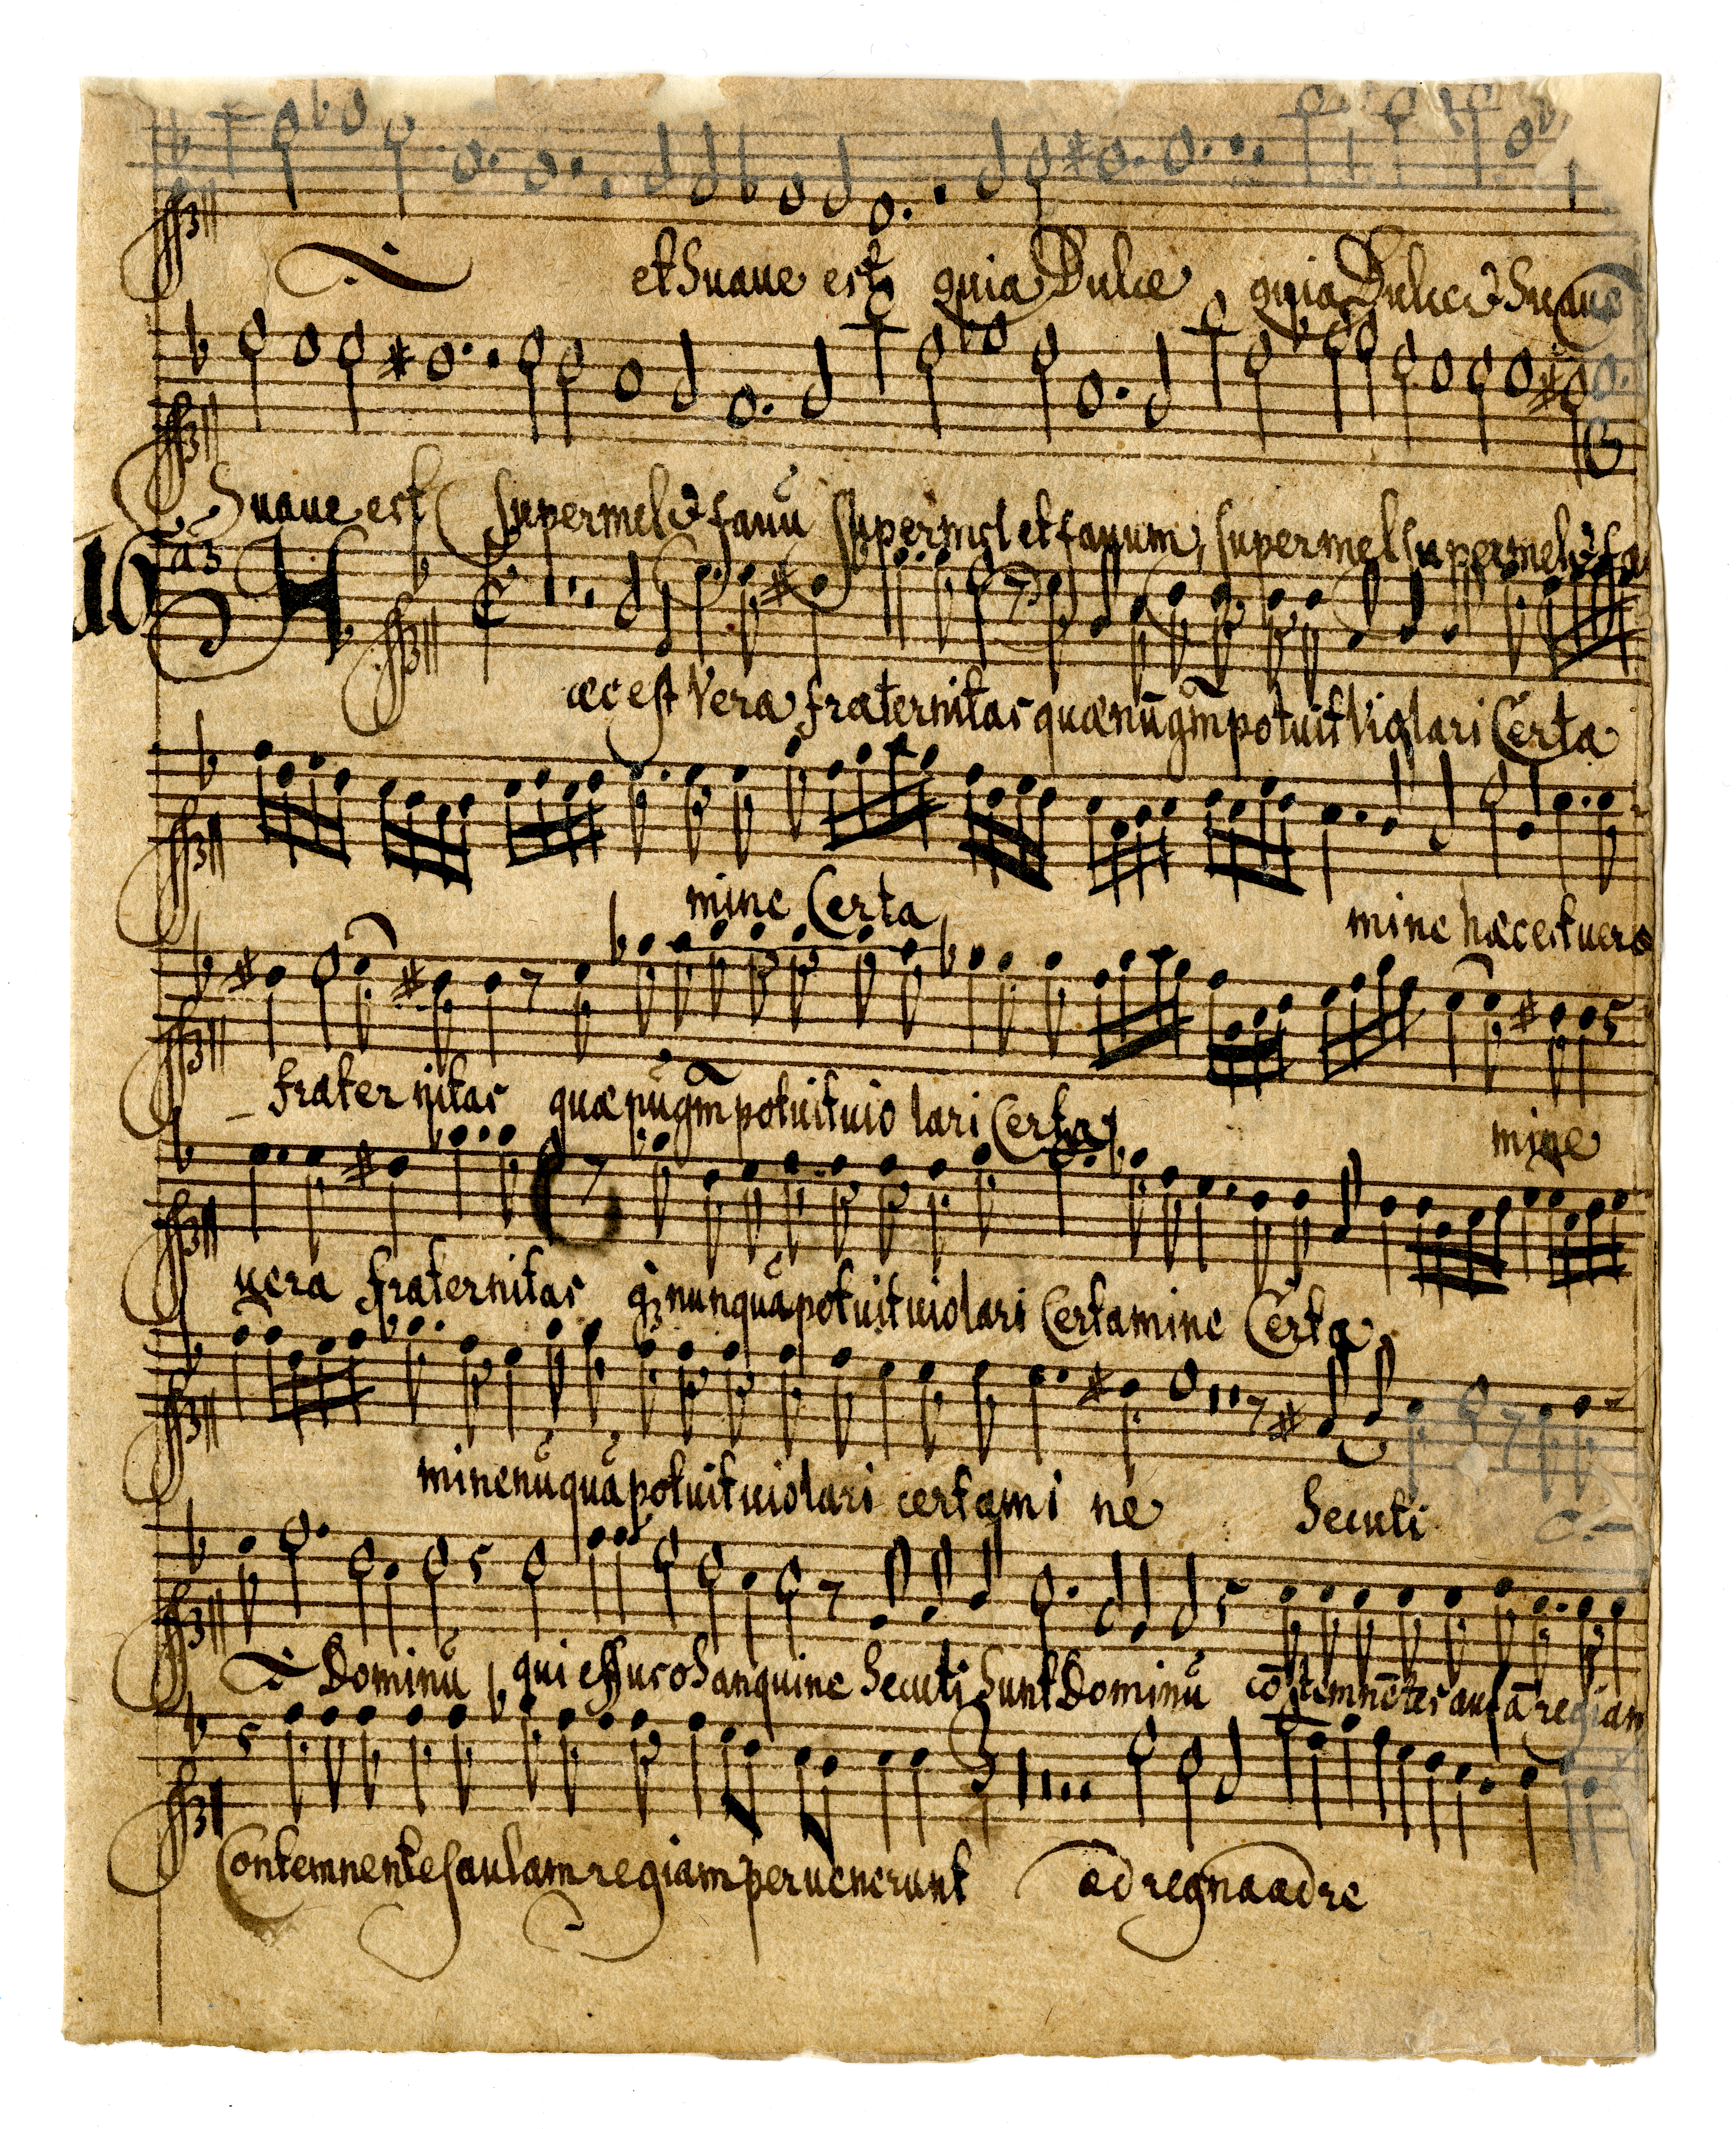 et Suaue est quia Dulce quia Dulce & Suaue
Suaue est super mel & fauũ super mel et fauum, super mel super mel & fa
16 a3 H
æc est Vera fraternitas quæ nũqm̃ potuit Violari Certa
mine Certa mine hæc est uera
fraternitas quæ nũqm̃ potuit uiolari Certa mine
uera fraternitas q3 nunquã potuit uiolari Certamine Certa
mine nũquã potuit uiolari certami ne Secuti
Dominũ qui effuso Sanguine Secuti Sunt Dominũ cõtemnẽtes aulã regiam
Contemnentes aulam regiam peruenerunt ad regna ad re